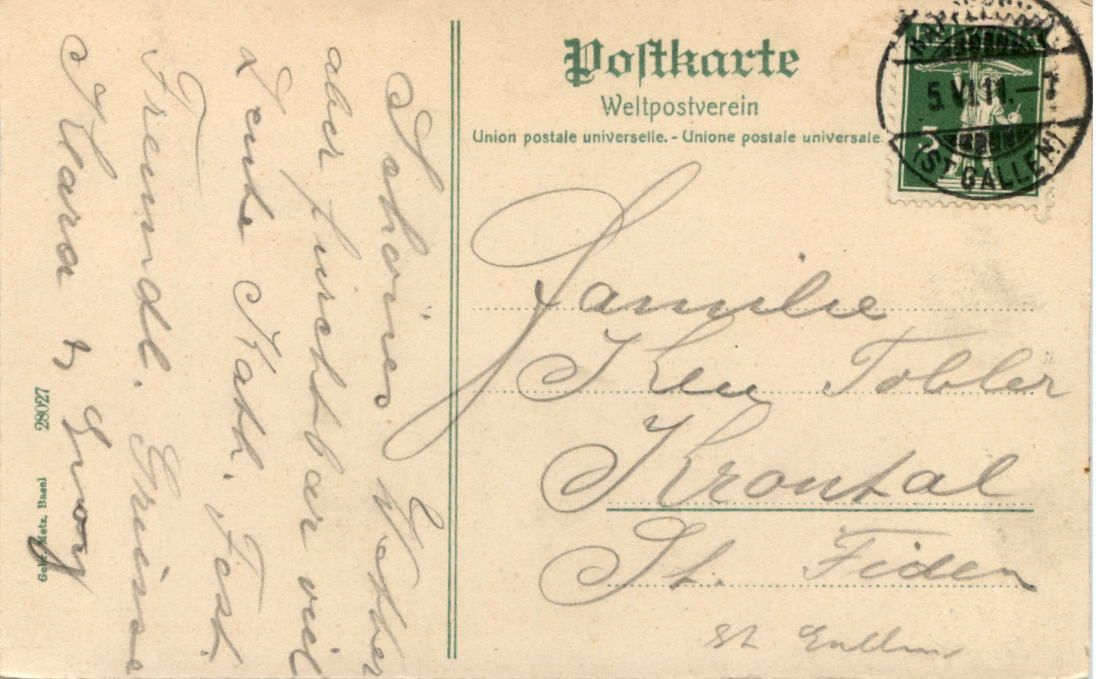 Postkarte
Weltpostverein
Union postale universelle. - Unione postale universale.
HELVETIA
5
5.VI.11.-7
(ST. GALLEN)
Schönes Wetter
aber furchtbar viel
Leute Kath. Fest.
Freundl. Grüsse
Klara &
Familie
Tobler
Krontal
St. Fiden
St. Gallen
Gebr. Metz, Basel 28027